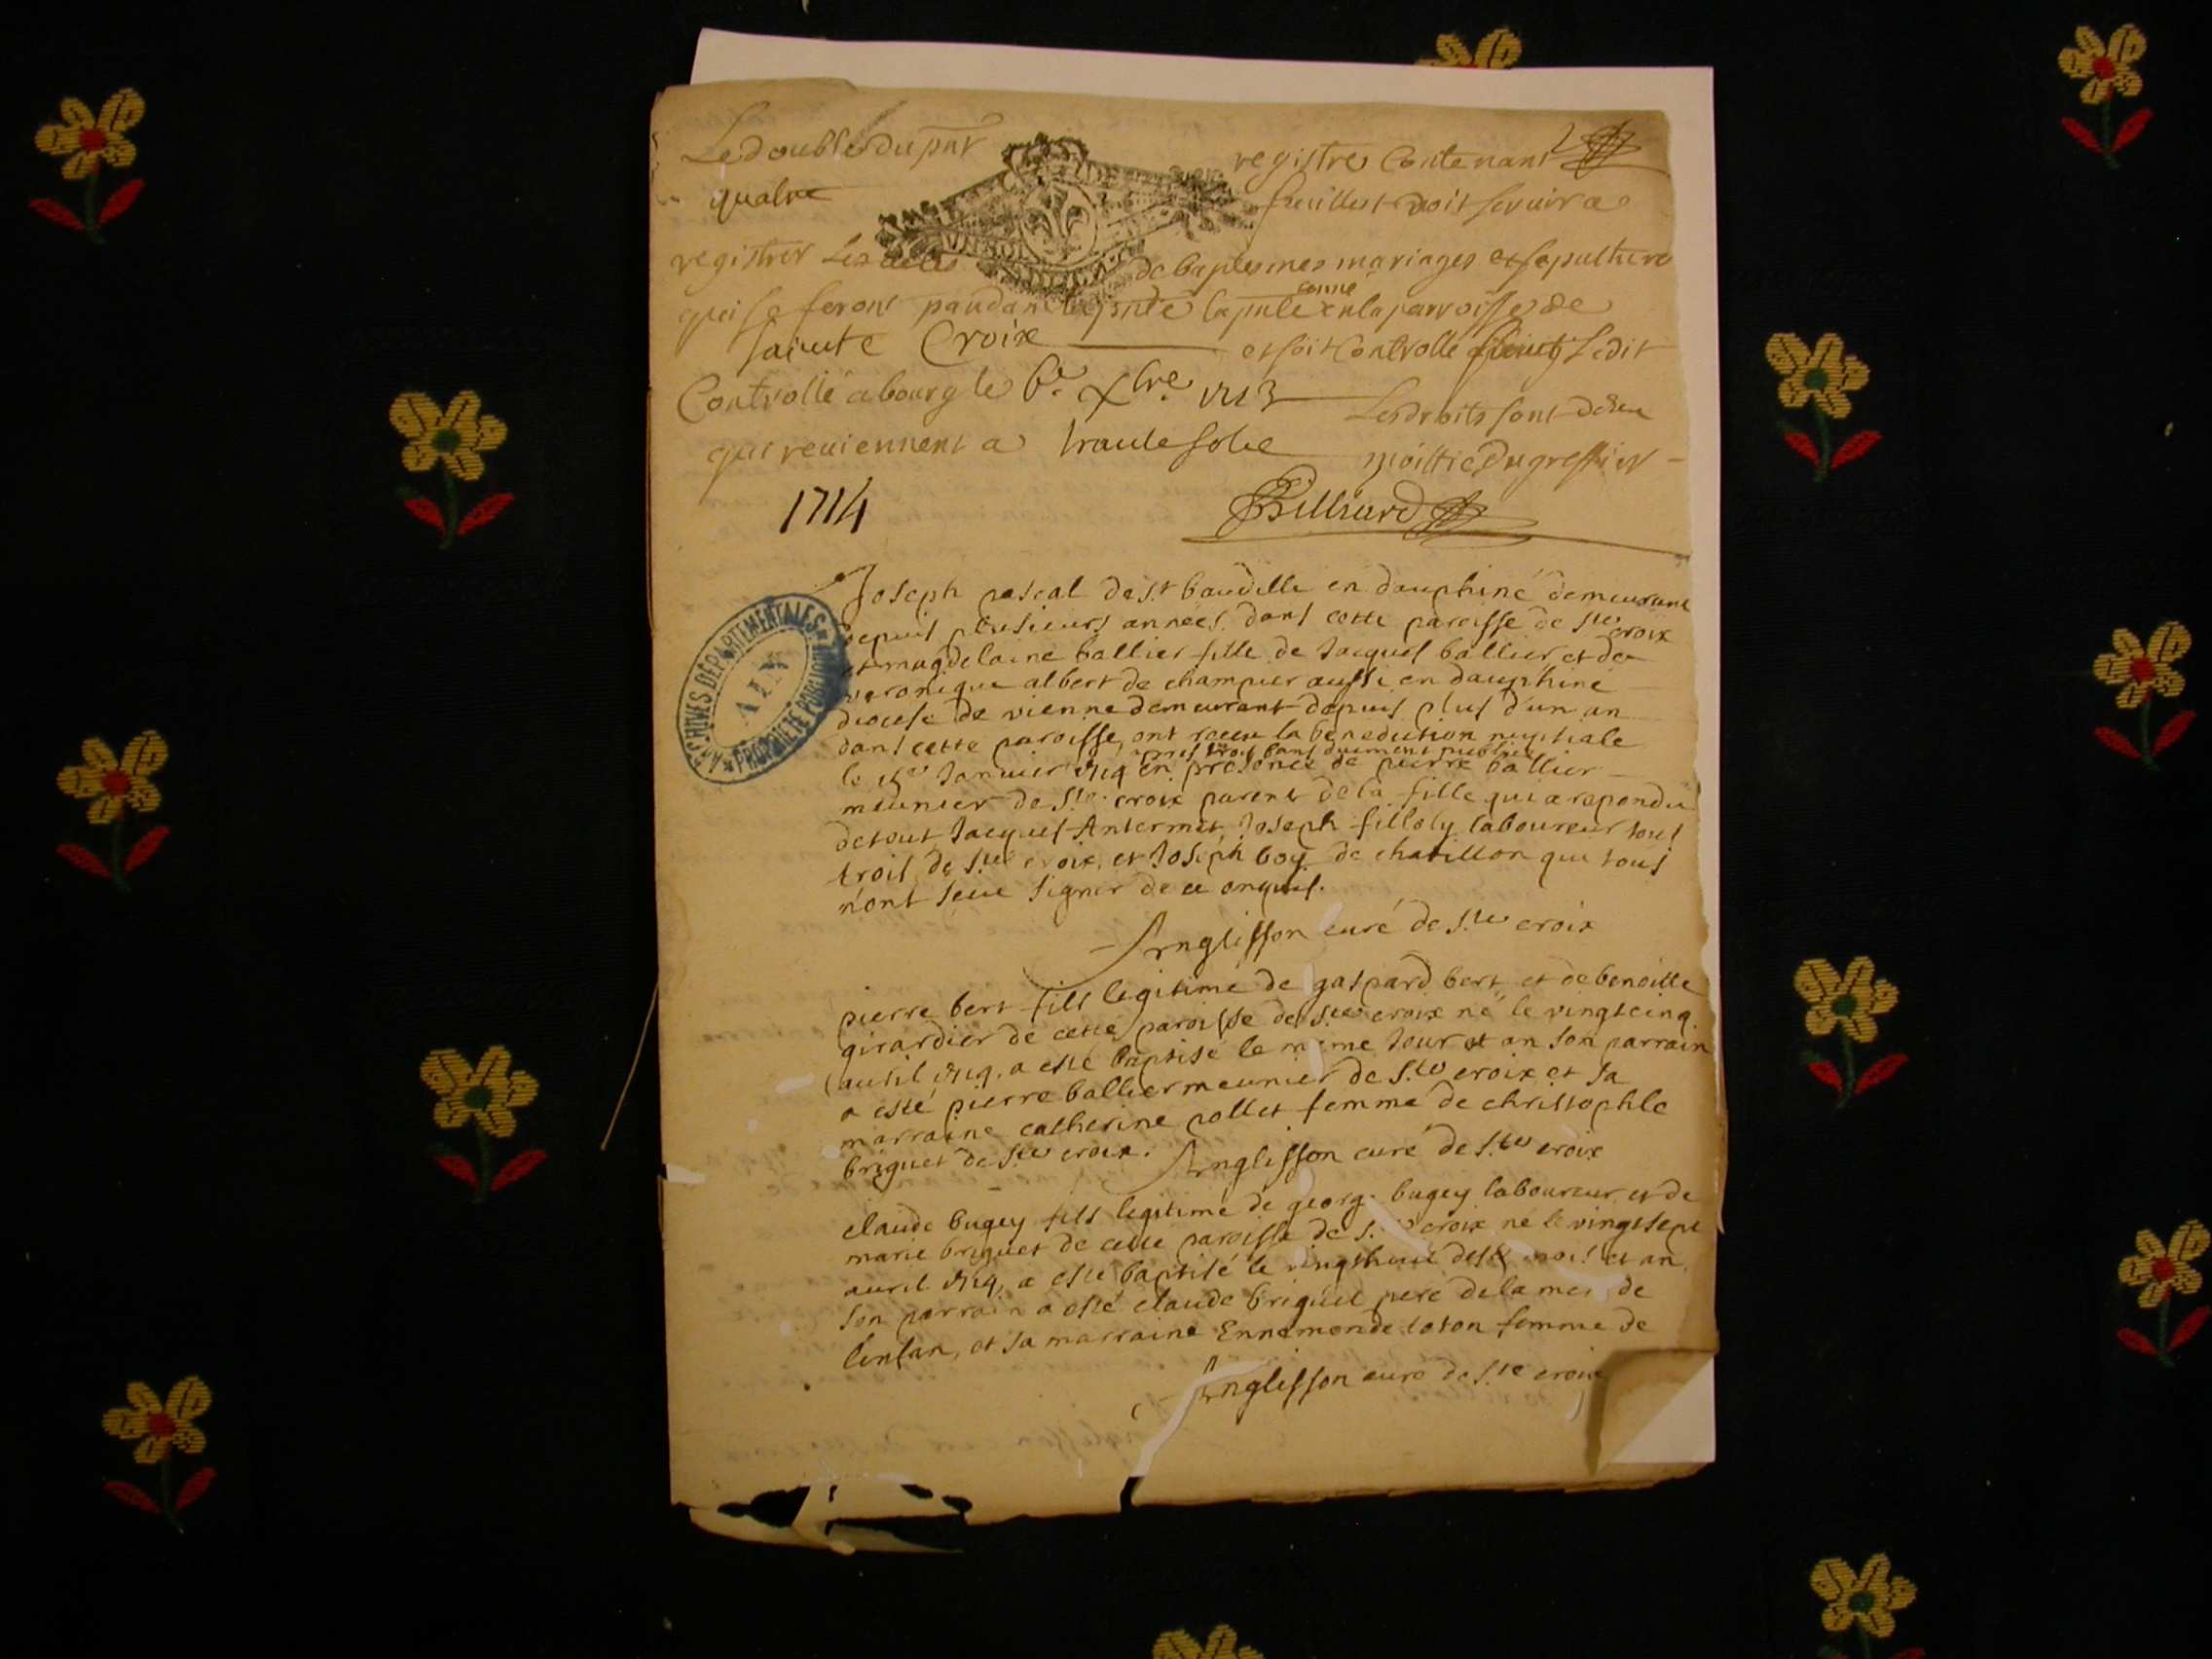 Le double du pnt registre Contenant
quatre feuillest doit servir a
registrer Les actes de baptesmes mariages et sepulture
qui se feront pandant en la parroisse de
sainte Croix et soit Controllé Ledit
Controllé a bourg le 6e Xbre 1713 Les droits sont
qui reviennent a trante sols moittie du greffier
1714 Billiard
Joseph pascal de st baudille en dauphiné demeurant
depuis plusieurs années dans cette paroisse de ste croix
et magdelaine ballier fille de Jacques ballier et de
veronique albert de champier aussi en dauphiné
diocese de vienne demeurant depuis plus d'un an
dans cette paroisse, ont receu la benediction nuptiale
apres trois bans duement publiés
le Janvier 1714 en presence de pierre ballier
meunier de Ste croix parent de la fille qui a repondu
de tout Jacques Antermet, Joseph filloly laboureur tous
trois de Ste croix, et Joseph boy de chatillon qui tous
n'ont seue signer de ce enquis.
Anglisson curé de Ste croix
pierre bert fils legitime de gaspard bert et de benoitte
girardier de cette paroisse de Ste croix né le vingtcinq
auril 1714. a esté baptisé le meme Jour et an son parrain
a esté pierre ballier meunier de Ste croix et sa
marraine catherine pollet femme de christophle
briguet de Ste croix. Anglisson curé de Ste croix
claude bugey fils legitime de georg. bugey laboureur et de
marie briguet de cette paroisse de Ste croix né le vingtsept
auril 1714, a esté baptisé le vingthuit desd mois et an,
son parrain a esté claude briguet pere de la mer de
lenfan, et sa marraine Ennemonde toton femme de
Anglisson curé de Ste croix
ARCHIVES DEPARTEMENTALES
AIN
PROPRIÉTÉ PUBLIQUE